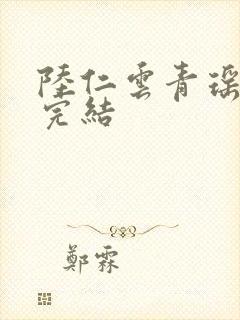 陸仁雲青瑶
完結
鄭霖